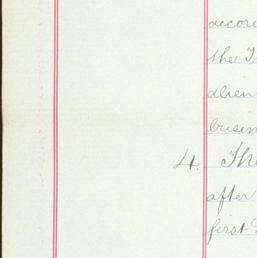 accord
the T
alien
busin
4. The
after
first